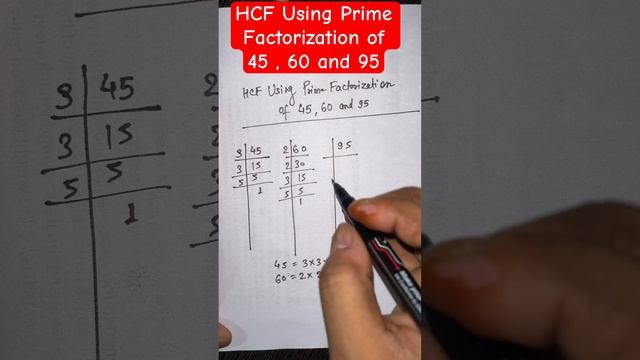 HCF Using Prime
Factorization of
45 , 60 and 95
HCF Using Prime Factorization
of 45, 60 and 95
3 45
3 15
5 5
1
2 60
2 30
3 15
5 5
1
95
45 = 3×3
60 = 2×
3 45
3 15
5 5
1